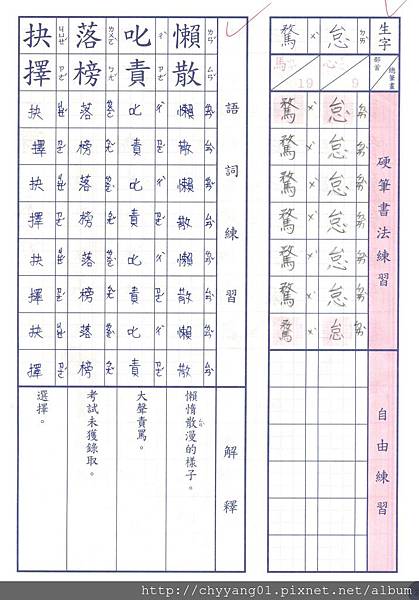 生字 部首 總筆畫 硬筆書法練習 自由練習
怠 ㄉㄞˋ 心 9 怠 怠 怠 怠 怠 怠 怠
騖 ㄨˋ 馬 19 騖 騖 騖 騖 騖 騖 騖
語詞練習 解釋
懶 ㄌㄢˇ 散 ㄙㄢˇ 懶 散 懶 散 懶 散 懶 散 懶惰散漫的樣子。
叱 ㄔˋ 責 ㄗㄜˊ 叱 責 叱 責 叱 責 叱 責 大聲責罵。
落 ㄌㄨㄛˋ 榜 ㄅㄤˇ 落 榜 落 榜 落 榜 落 榜 考試未獲錄取。
抉 ㄐㄩㄝˊ 擇 ㄗㄜˊ 抉 擇 抉 擇 抉 擇 抉 擇 選擇。
http://chyyang01.pixnet.net/album